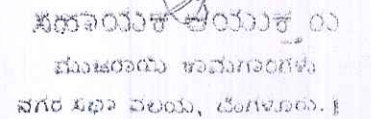 ಸಹಾಯಕ ಆಯುಕ್ತರು
ಮುಜರಾಯಿ ಕಾಮಗಾರಿಗಳು
ನಗರ ಸಭಾ ವಲಯ, ಬೆಂಗಳೂರು.